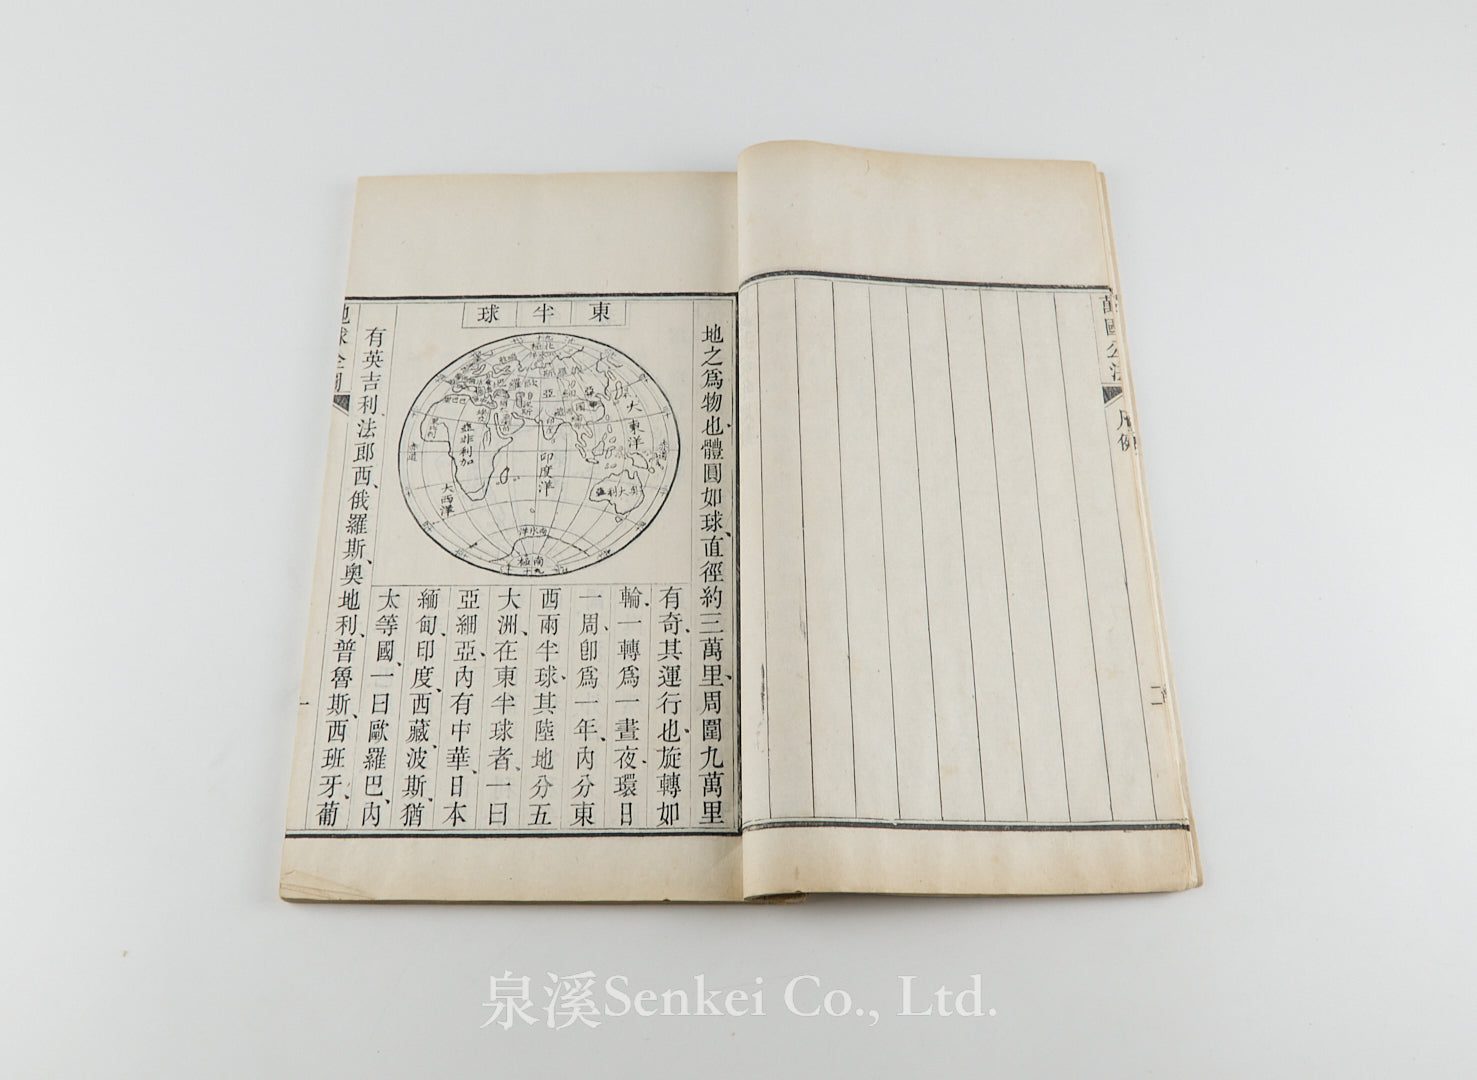 萬國公法
凡例
二
地之爲物也、體圓如球、直徑約三萬里、周圍九萬里
東半球
大東洋
亞非利加
印度洋
大西洋
赤道
赤道
南冰洋
有奇、其運行也、旋轉如
輪、一轉爲一晝夜、環日
一周、卽爲一年、內分東
西兩半球、其陸地分五
大洲、在東半球者、一曰
亞細亞、內有中華、日本
緬甸、印度、西藏、波斯、猶
太等國、一曰歐羅巴、內
有英吉利、法郎西、俄羅斯、奧地利、普魯斯、西班牙、葡
地球全圖
一
泉溪Senkei Co., Ltd.